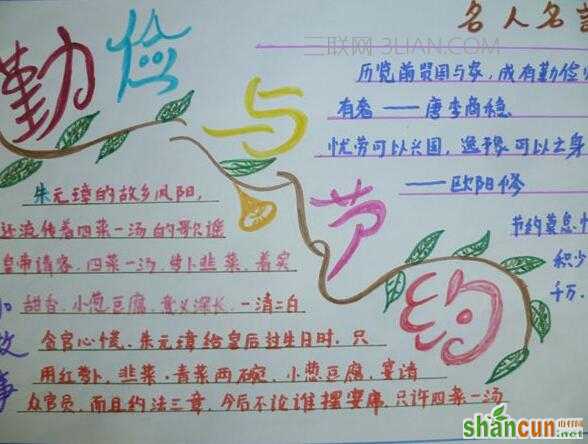 勤俭与节约
名人名
三联网 3LIAN.COM
历览前贤国与家，成有勤俭
有奢——唐李商稳
忧劳可以兴国，逸豫可以亡身
——欧阳修
节约莫怠
积少
千万.
小故事
朱元璋的故乡凤阳，
还流传着四菜一汤的歌谣
皇帝请客，四菜一汤 萝卜韭菜，着实
甜香，小葱豆腐，意义深长，一清二白
贪官心慌。朱元璋给皇后过生日时，只
用红萝卜，韭菜，青菜两碗，小葱豆腐，宴请
众官员，而且约法三章，今后不论谁摆宴席，只许四菜一汤
shancun
.net